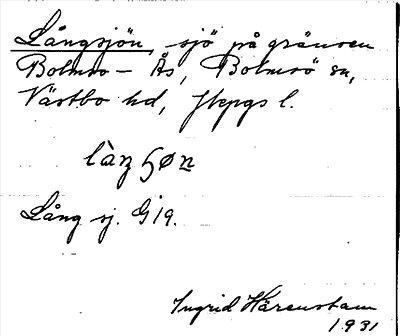 Långsjön, sjö på gränsen
Bolmsö – Ås, Bolmsö sn,
Västbo hd, Jkpgs l.
Lång sj. G 19.
Ingrid Härenstam
1931